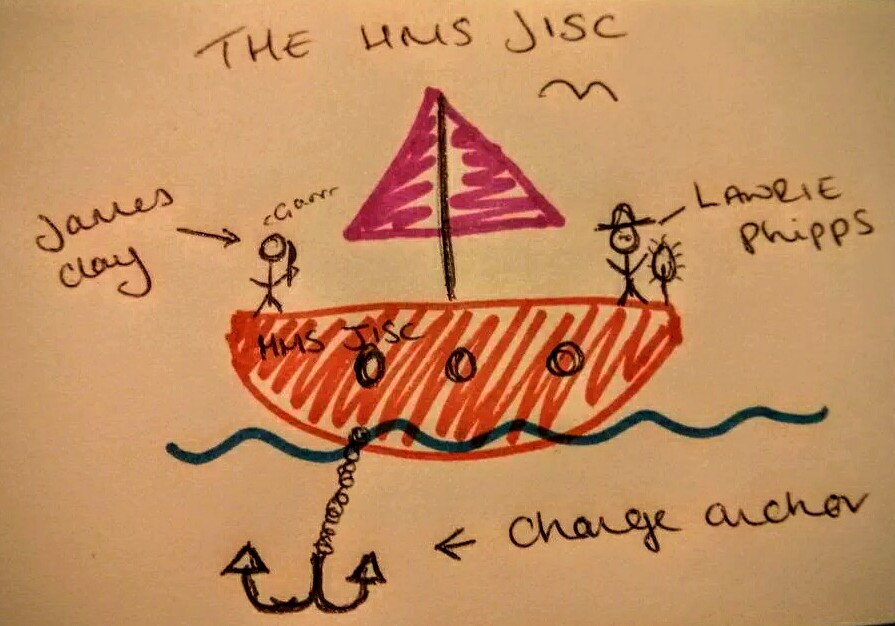 THE HMS JISC
James
clay
Garrr
LAWRIE
Phipps
HMS JISC
Change anchor